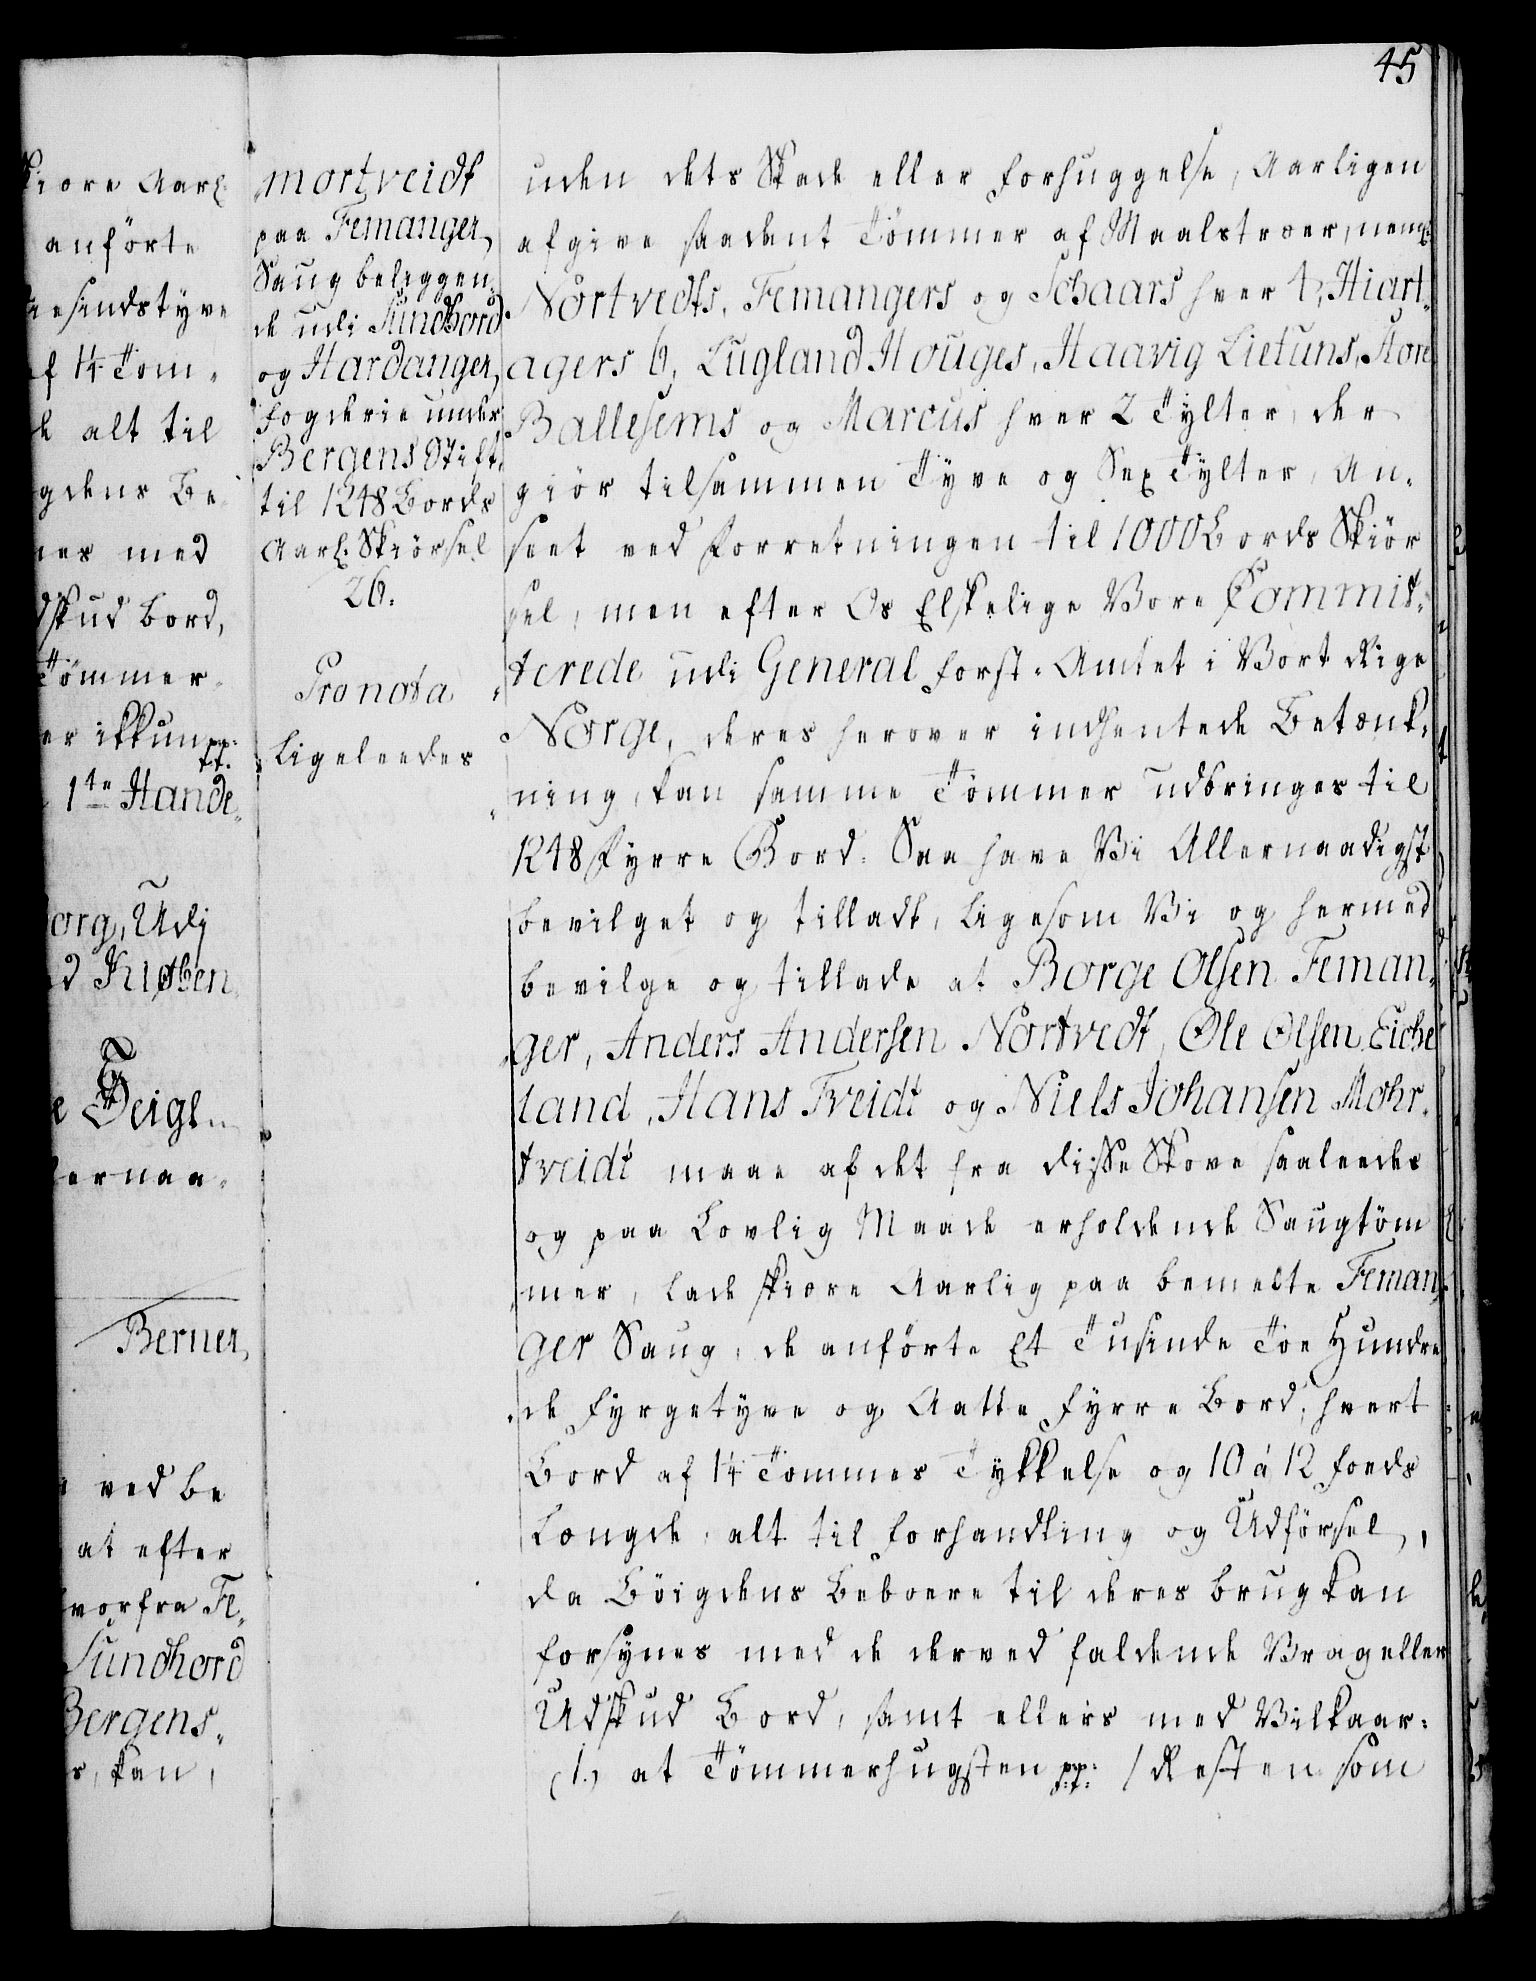 45
kiore Aarl:
anförte
iesindstyve
af 1¼ Tom-
alt til
gdens Be
nes med
dskud bord,
Tömmer
er ikkun pp:
1te Hande
borg, Udi
d Kiøben
Teigl
lernaa-
Berner,
ved be
at efter
hvorfra Fe-
Sundhord
Bergens-
s, kan,
mortveidt
paa Femanger
Saug beliggen-
de udi Sundhord
og Hardanger
Fogderie under
Bergens Stift
til 1248 Bords
Aarl: Skiörsel
26.
Pro nota
Ligeleedes
uden dets Skade eller forhuggelse, Aarligen
afgive saadent Tömmer af Maalstræer, neml:
Nortvedts, Femangers og Schaars hver 4, Hiart-
agers 6, Lugland Houges, Haavig Lietuns, Store
Ballesems og Marcus hver 2 Tylter, der
giör tilsammen Tyve og Sex Tylter, An-
seet ved Forretningen til 1000 Bords Skiör
sel, men efter Os Elskelige Vore Committ-
terede udi General Forst-Amtet i Vort Rige
Norge, deres herover indhentede Betænk-
ning, kan samme Tömmer udbringes til
1248 Fyrre Bord: Saa have Vi Allernaadigst
bevilget og tilladt, ligesom Vi og hermed
bevilge og tillade at Borge Olsen Feman-
ger, Anders Andersen Nortvedt, Ole Olsen Eiche
land, Hans Tveidt og Niels Johansen Mohr-
tveidt maae af det fra disse Skove saaleedes
og paa Lovlig Maade erholdende Saugtöm
mer, lade skiore Aarlig paa bemelte Feman-
ger Saug, de anförte Et Tusinde Toe Hundre
de Fyrgetyve og Aatte Fyrre Bord, hvert
Bord af 1¼ Tommes Tykkelse og 10 à 12 Foeds
Længde, alt til Forhandling og Udförsel,
da Böigdens Beboere til deres brug kan
forsynes med de derved faldende Vrag eller
Udskud Bord, samt ellers med Vilkaar:
(1.) at Tömmerhugsten pp: / Resten som